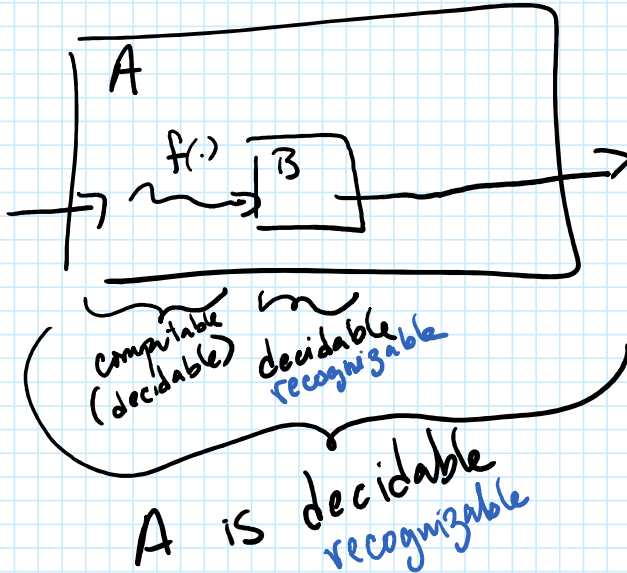 A
f(·)
B
computable
(decidable)
decidable
recognizable
A is decidable
recognizable